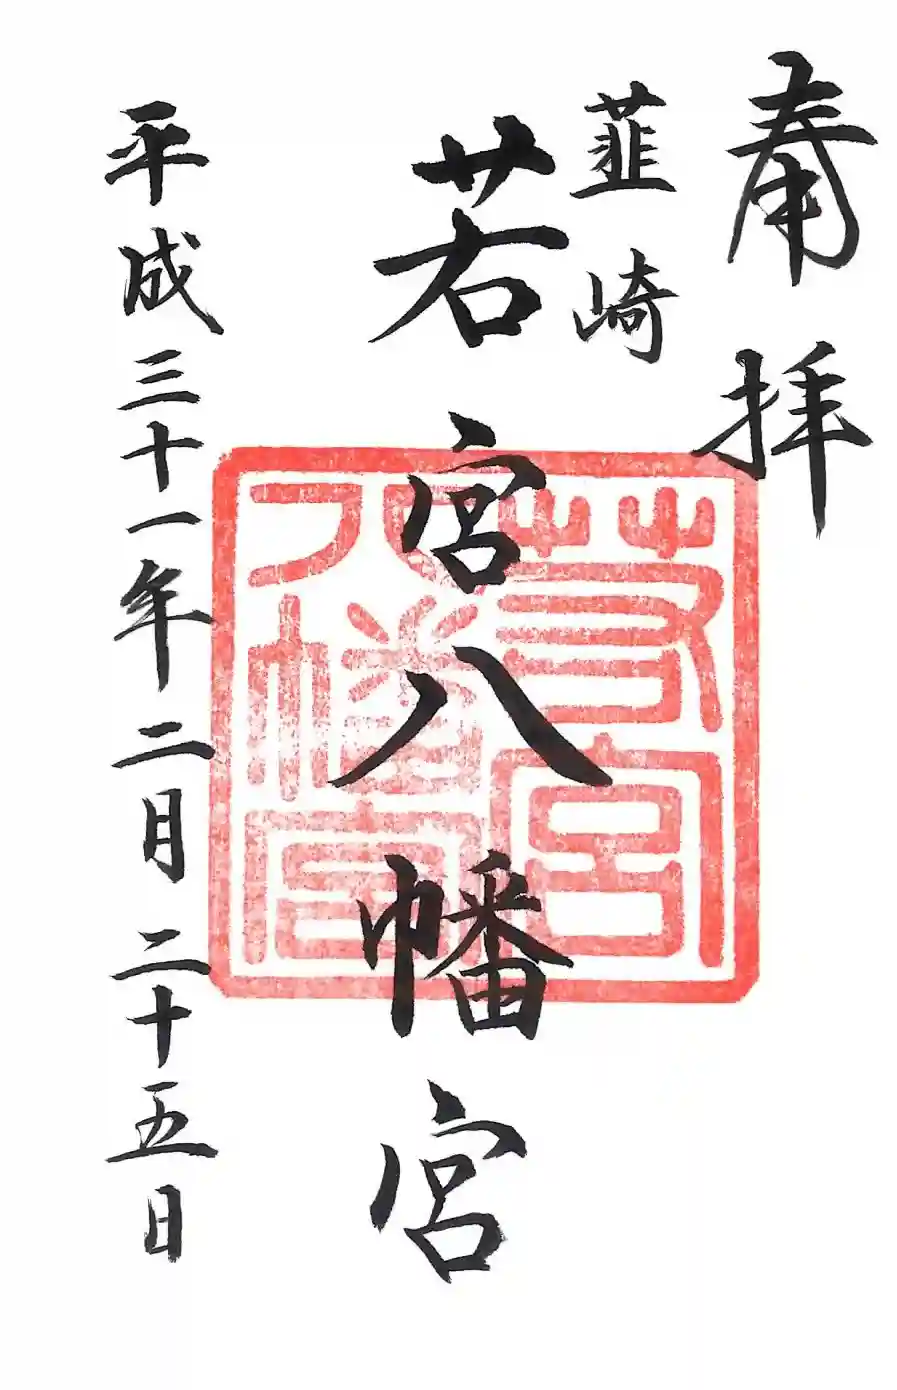 奉拝
韮崎
若宮八幡宮
若宮
八幡宮
平成三十一年二月二十五日